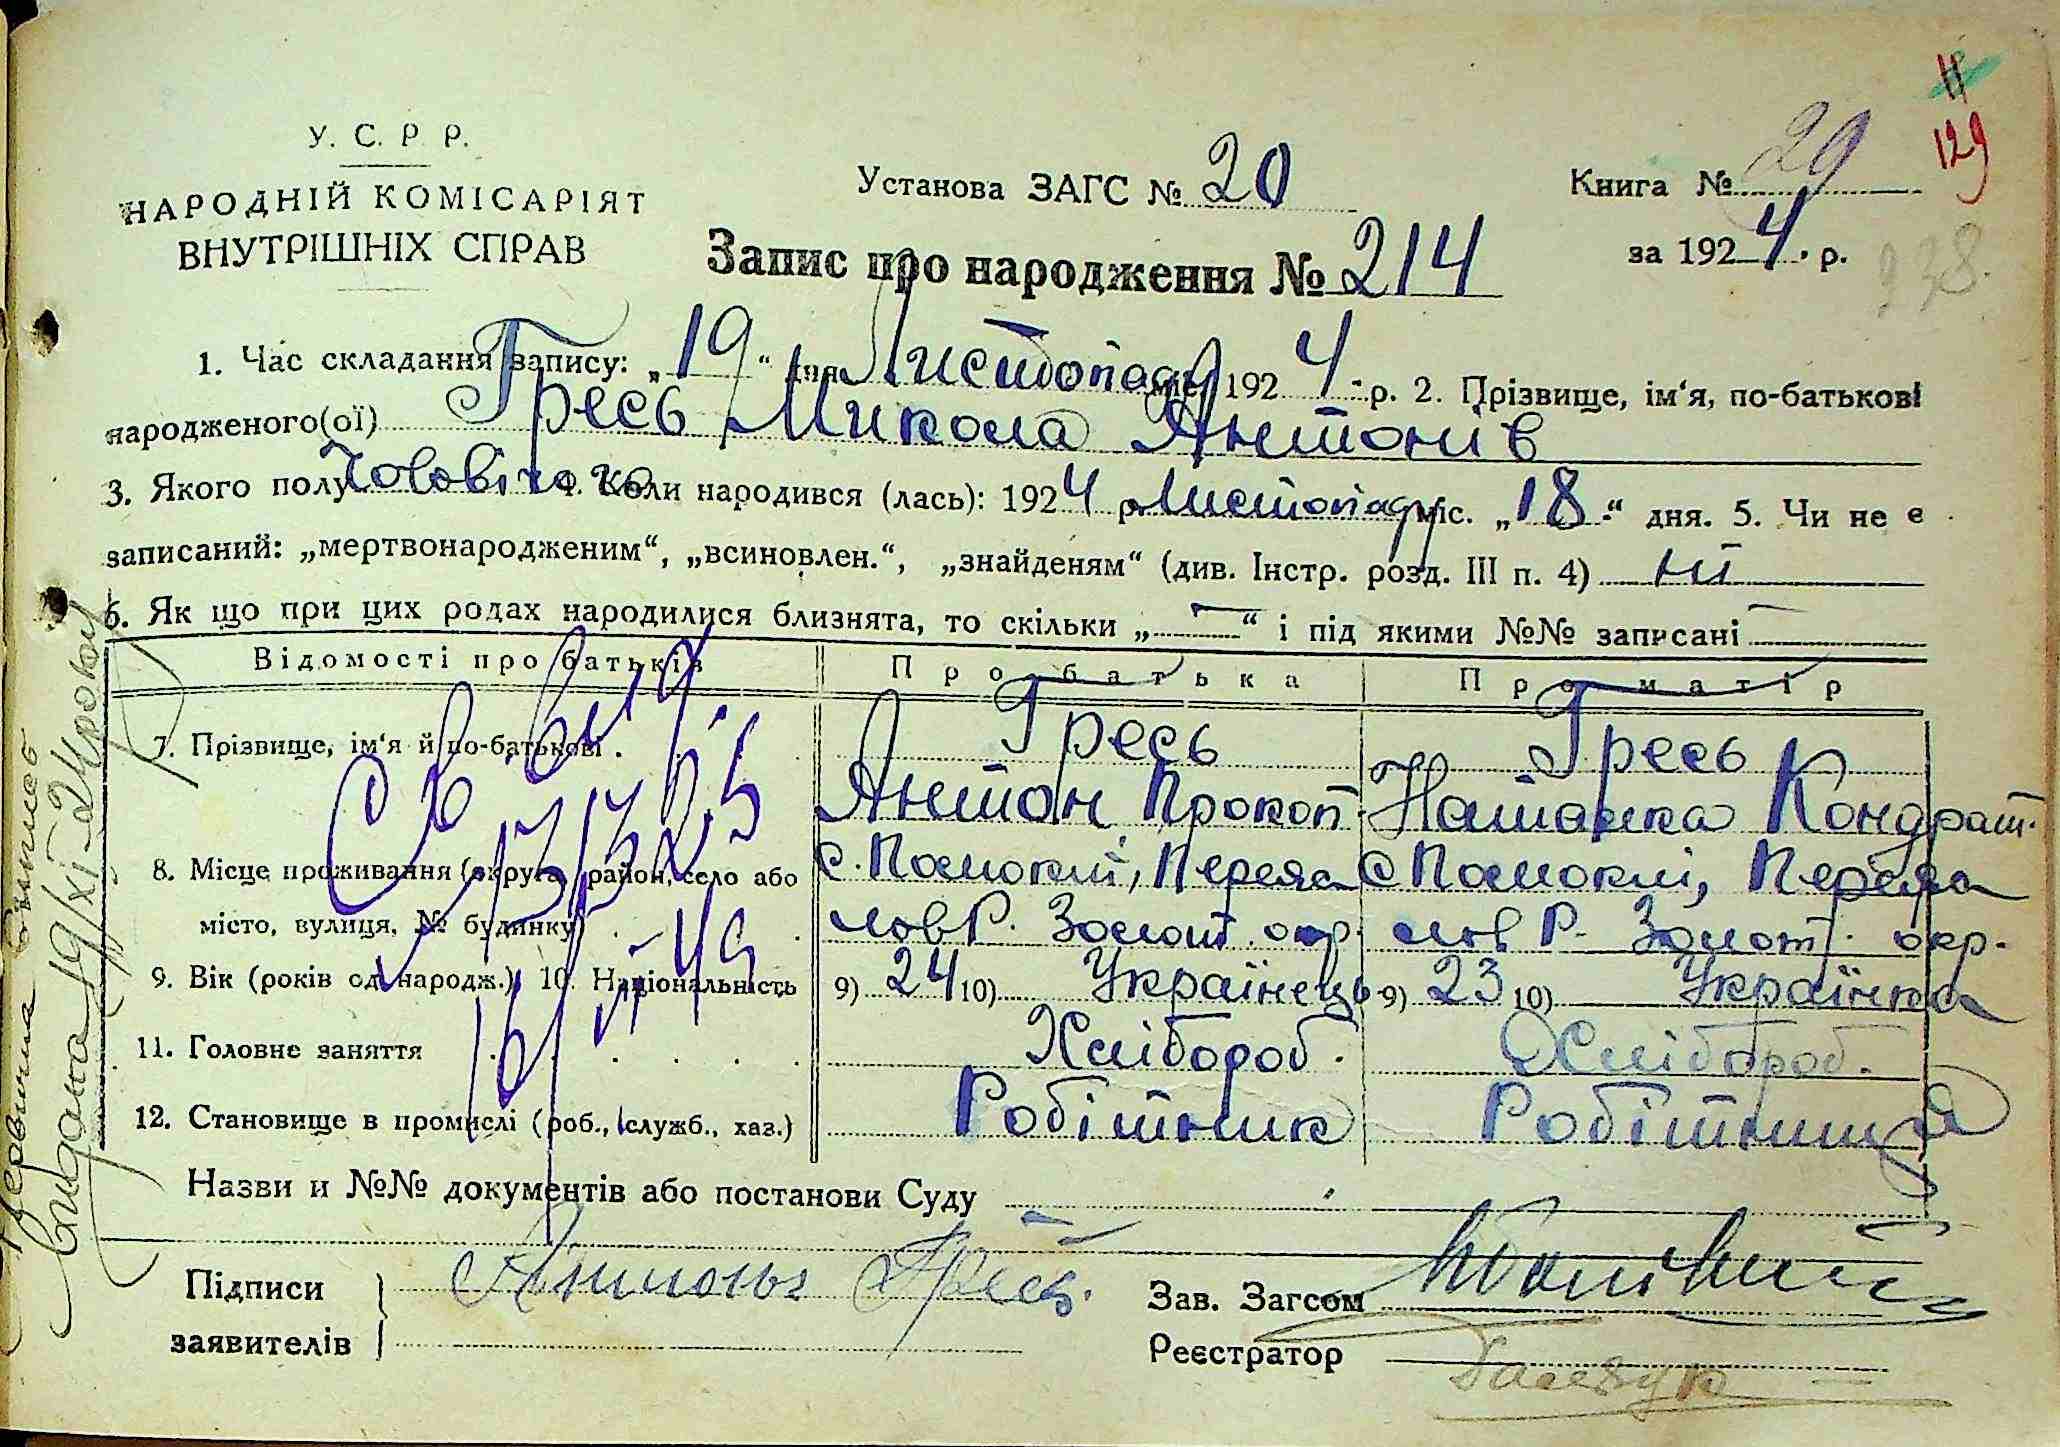 У. С. Р. Р.
НАРОДНІЙ КОМІСАРІЯТ
ВНУТРІШНІХ СПРАВ
Установа ЗАГС № 20
Книга № 29
129
за 1924 р.
238.
Запис про народження № 214
1. Час складання запису: „19“ дня Листопаду міс. 1924 р. 2. Прізвище, ім‘я, по-батькові
народженого(ої) Гресь Микола Антонів
3. Якого полу Чоловічого 4. Коли народився (лась): 1924 р. Листопаду міс. „18“ дня. 5. Чи не є
записаний: „мертвонародженим“, „всиновлен.“, „знайденям“ (див. Інстр. розд. III п. 4) ні
6. Як що при цих родах народилися близнята, то скільки „—“ і під якими №№ записані —
Відомості про батьків Про батька Про матір
7. Прізвище, ім‘я й по-батькові . Гресь Гресь
Антон Прокоп. Наталка Кондрат.
8. Місце проживання (округа, район, село або с. Помоклі, Переяс с. Помоклі, Переяс
місто, вулиця, № будинку) . лов Р. Золот. окр. лов Р. Золот. окр.
9. Вік (років од народж.) 10. Національність 9) 24 10) Українець 9) 23 10) Українка
11. Головне заняття Хлібороб. Хлібороб.
12. Становище в промислі (роб., служб., хаз.) Робітник Робітниця
Назви и №№ документів або постанови Суду
Підписи
заявителів
Антонъ Гресь.
Зав. Загсом
Реєстратор
Первична випись
видана 19/XI 24 року